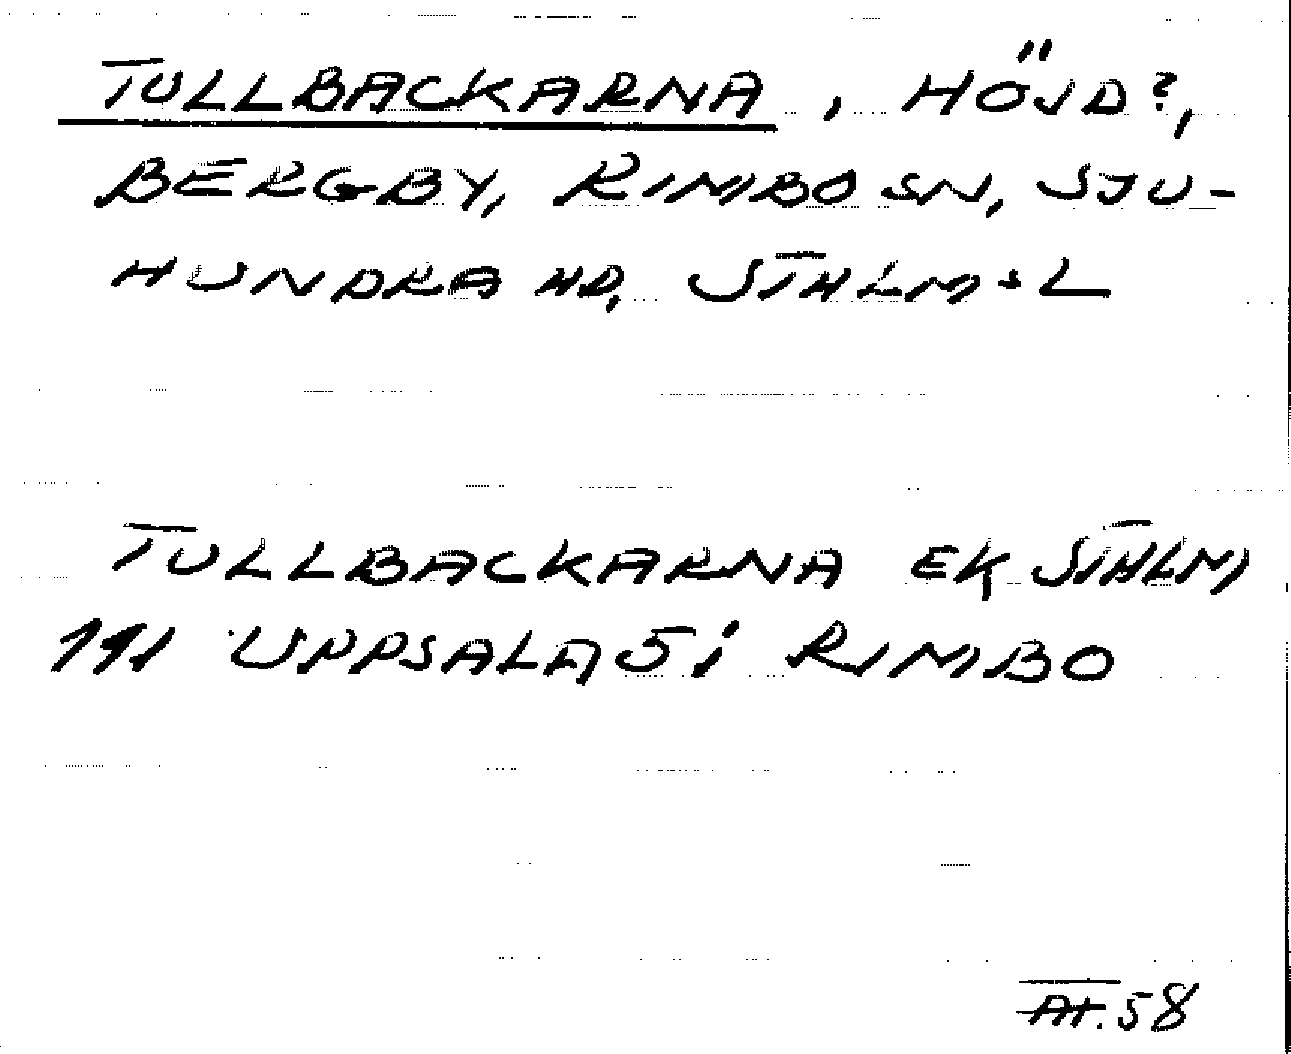 TULLBACKARNA, HÖJD?,
BERGBY, RIMBO SN, SJU-
HUNDRA HD, STHLMS L
TULLBACKARNA EK STHLM
191 UPPSALA 5i RIMBO
AT.58